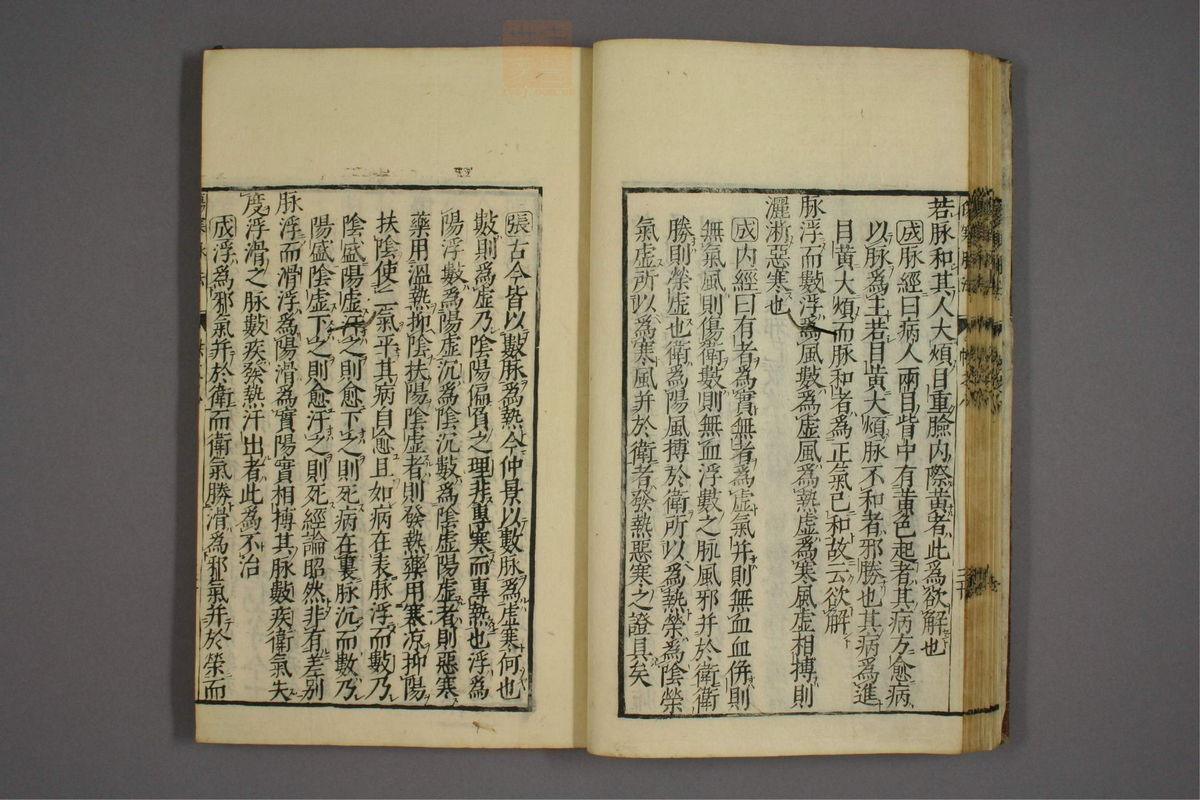 若脉和其人大煩目重臉内際黄者此為欲解也
成脉經曰病人兩目眥中有黄色起者其病方愈病
以脉為主若目黄大煩脉不和者邪勝也其病為進
目黄大煩而脉和者為正氣已和故云欲解
脉浮而數浮為風數為虚風為熱虚為寒風虚相搏則
灑淅惡寒也
成内經曰有者為實無者為虚氣并則無血血併則
無氣風則傷衛數則無血浮數之脉風邪并於衛衛
勝則榮虚也衛為陽風搏於衛所以為熱榮為陰榮
氣虚所以為寒風并於衛者發熱惡寒之證具矣
張古今皆以數脉為熱今仲景以數脉為虚寒何也
數則為虚乃陰陽偏負之理非專寒而專熱也浮為
陽浮數為陽虚沉為陰沉數為陰虚陽虚者則惡寒
藥用溫熱抑陰扶陽陰虚者則發熱藥用寒凉抑陽
扶陰使二氣平其病自愈且如病在表脉浮而數乃
陰盛陽虚汗之則愈下之則死病在裏脉沉而數乃
陽盛陰虚下之則愈汗之則死經論昭然非有差別
脉浮而滑浮為陽滑為實陽實相搏其脉數疾衛氣失
度浮滑之脉數疾發熱汗出者此為不治
成浮為邪氣并於衛而衛氣勝滑為邪氣并於榮而